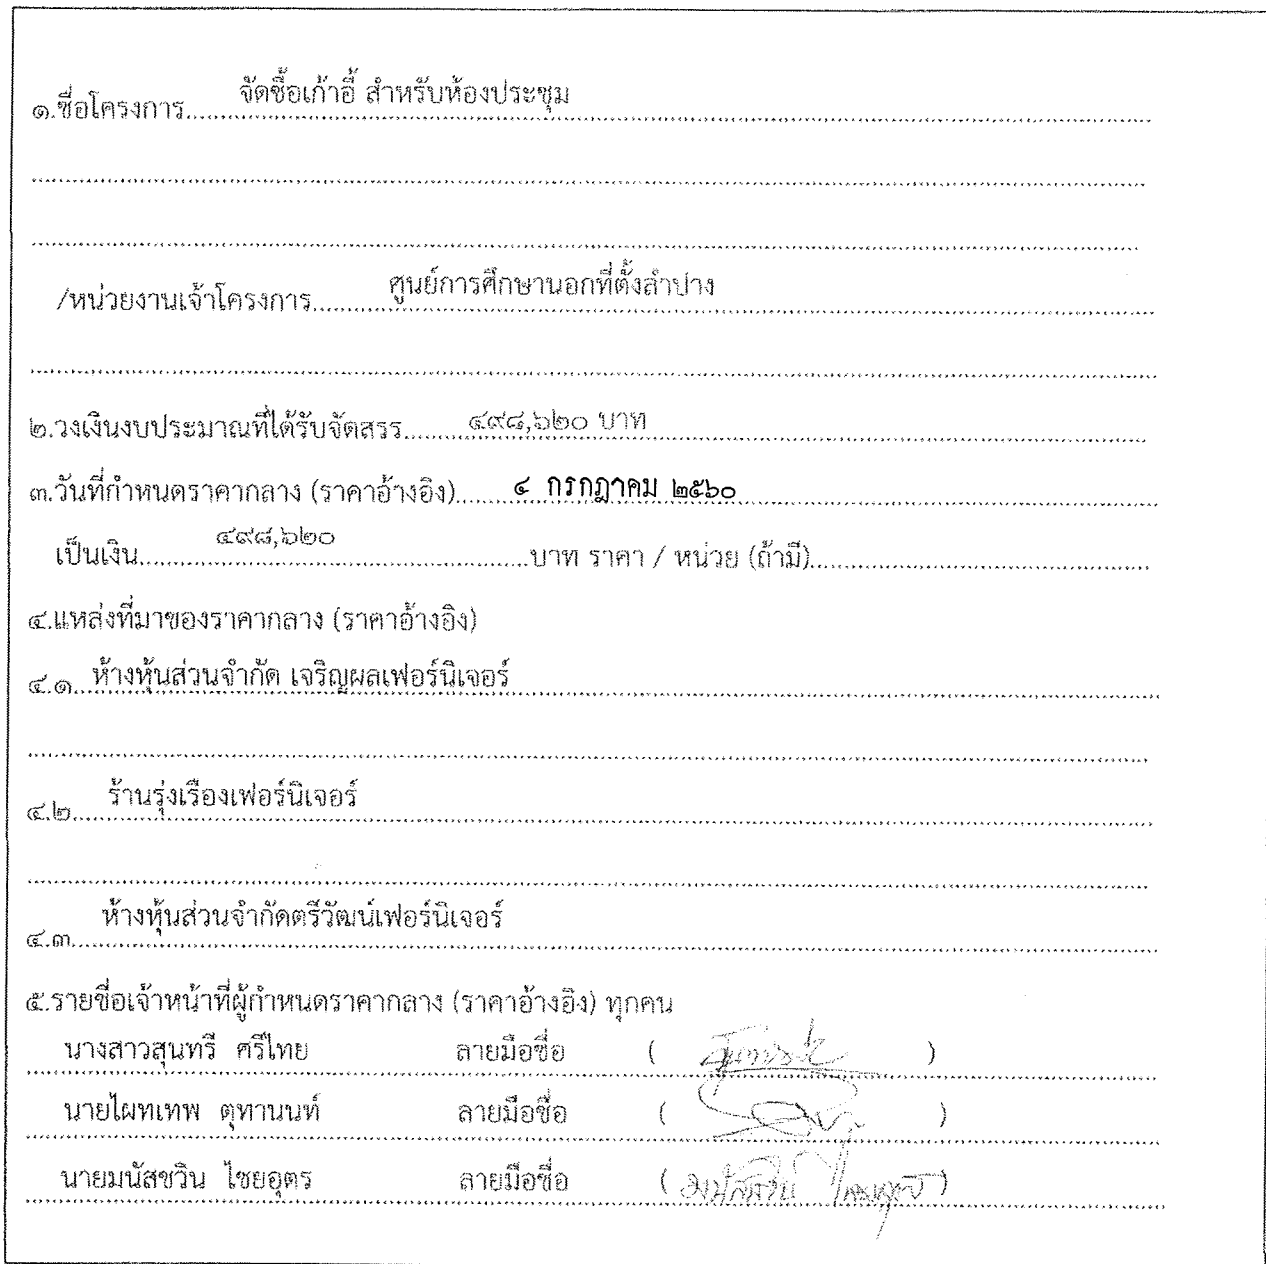 ๑.ชื่อโครงการ.....จัดซื้อเก้าอี้ สำหรับห้องประชุม
/หน่วยงานเจ้าโครงการ.....ศูนย์การศึกษานอกที่ตั้งลำปาง
๒.วงเงินงบประมาณที่ได้รับจัดสรร.....๔๙๘,๖๒๐ บาท
๓.วันที่กำหนดราคากลาง (ราคาอ้างอิง).....๔ กรกฎาคม ๒๕๖๐
เป็นเงิน.....๔๙๘,๖๒๐.....บาท ราคา / หน่วย (ถ้ามี).....
๔.แหล่งที่มาของราคากลาง (ราคาอ้างอิง)
๔.๑ ห้างหุ้นส่วนจำกัด เจริญผลเฟอร์นิเจอร์
๔.๒ ร้านรุ่งเรืองเฟอร์นิเจอร์
๔.๓ ห้างหุ้นส่วนจำกัดตรีวัฒน์เฟอร์นิเจอร์
๕.รายชื่อเจ้าหน้าที่ผู้กำหนดราคากลาง (ราคาอ้างอิง) ทุกคน
นางสาวสุนทรี ศรีไทย ลายมือชื่อ ( )
นายไผทเทพ ตุทานนท์ ลายมือชื่อ ( )
นายมนัสชวิน ไชยอุตร ลายมือชื่อ ( )